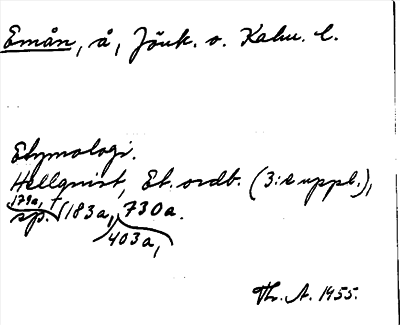 Emån, å, Jönk. o. Kalm. l.
Etymologi.
Hellquist, Et. ordb. (3:e uppl.),
179a,
sp. 183a, 730a.
403a,
Th. A. 1955.